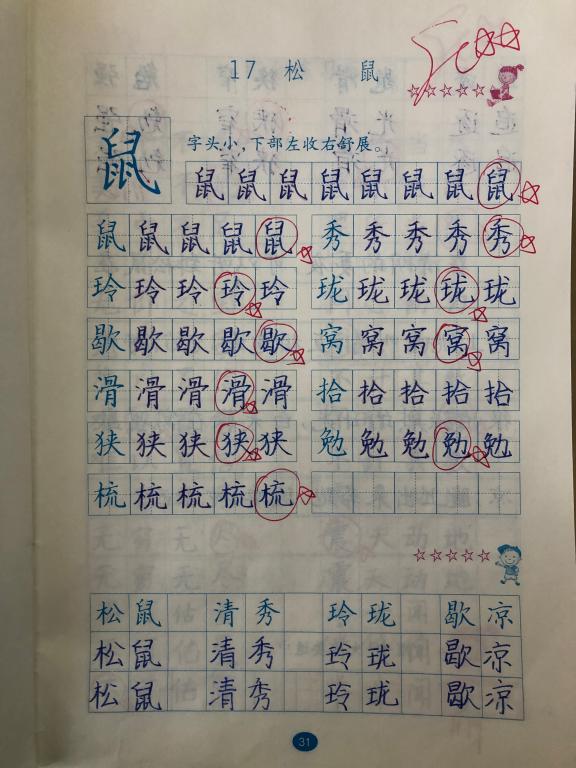 17 松 鼠
鼠
字头小，下部左收右舒展。
鼠 鼠 鼠 鼠 鼠 鼠 鼠 鼠
鼠 鼠 鼠 鼠 鼠 秀 秀 秀 秀 秀
玲 玲 玲 玲 玲 珑 珑 珑 珑 珑
歇 歇 歇 歇 歇 窝 窝 窝 窝 窝
滑 滑 滑 滑 滑 拾 拾 拾 拾 拾
狭 狭 狭 狭 狭 勉 勉 勉 勉 勉
梳 梳 梳 梳 梳
松 鼠 清 秀 玲 珑 歇 凉
松 鼠 清 秀 玲 珑 歇 凉
松 鼠 清 秀 玲 珑 歇 凉
31